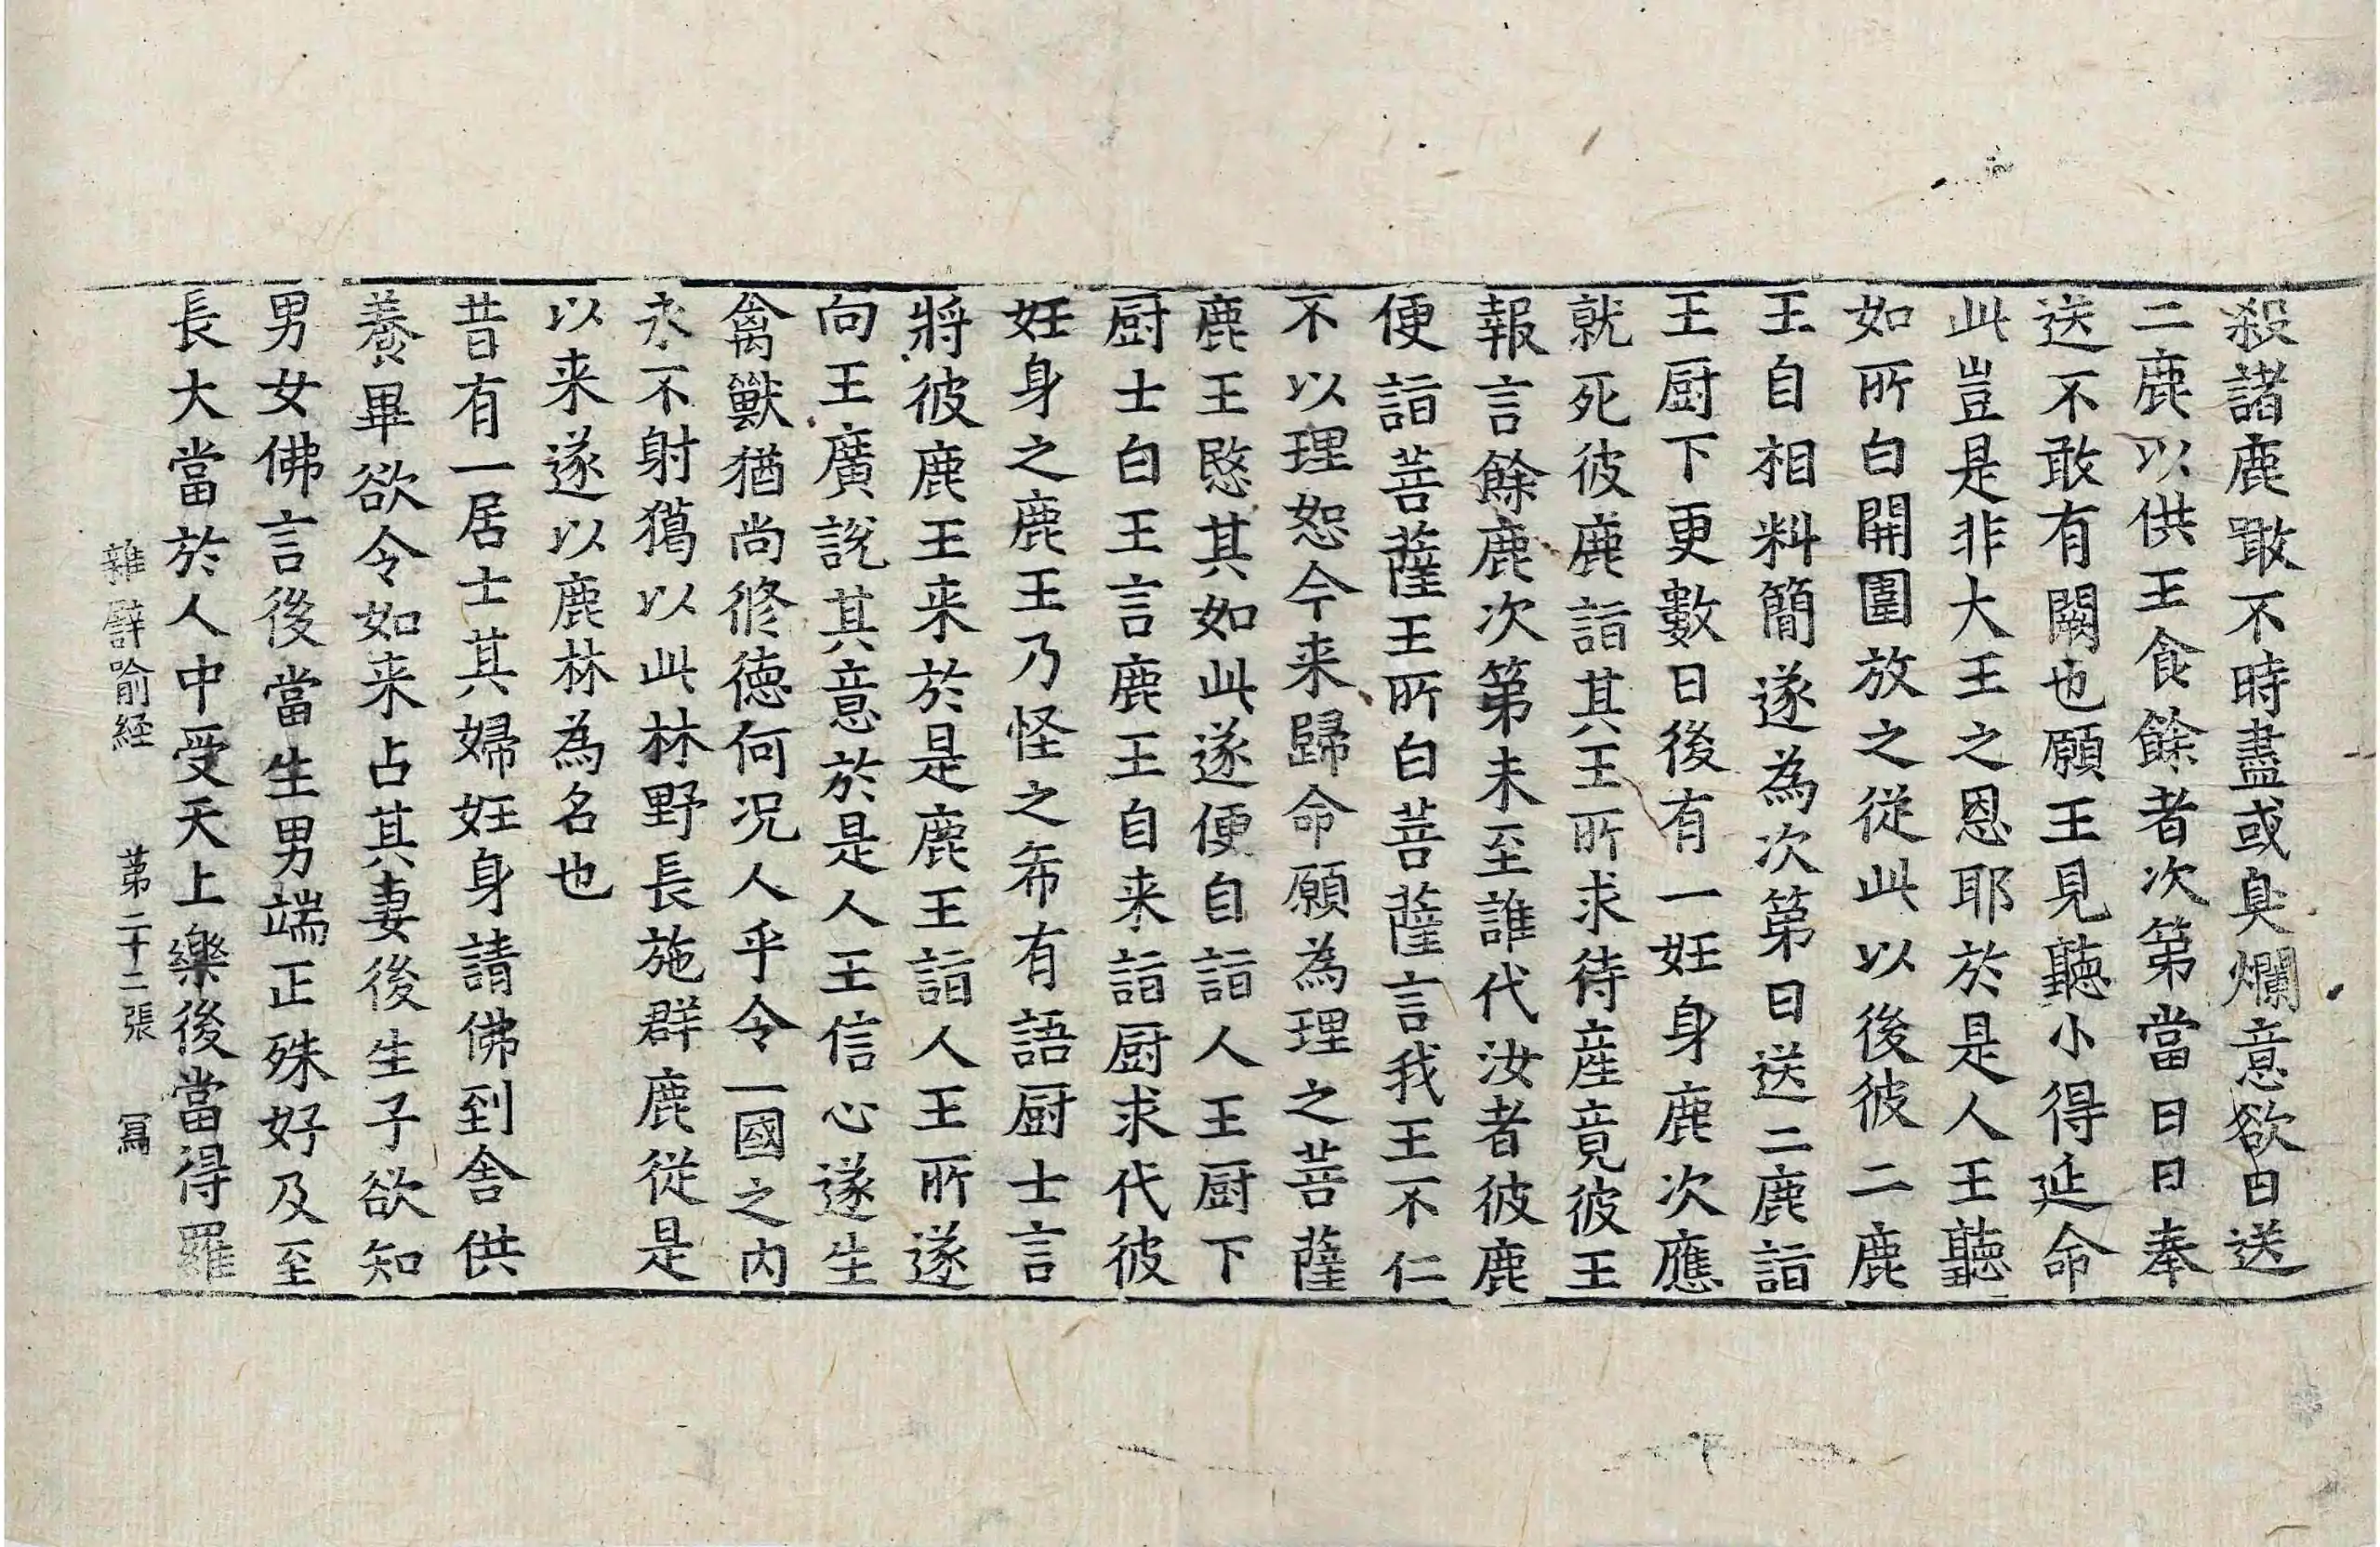 殺諸鹿噉不時盡或臭爛意欲日送
二鹿以供王食餘者次第當日日奉
送不敢有闕也願王見聽小得延命
此豈是非大王之恩耶於是人王聽
如所白開圍放之從此以後彼二鹿
王自相料簡遂為次第日送二鹿詣
王厨下更數日後有一妊身鹿次應
就死彼鹿詣其王所求待產竟彼王
報言餘鹿次第未至誰代汝者彼鹿
便詣菩薩王所白菩薩言我王不仁
不以理恕今来歸命願為理之菩薩
鹿王愍其如此遂便自詣人王厨下
厨士白王言鹿王自来詣厨求代彼
妊身之鹿王乃怪之希有語厨士言
將彼鹿王来於是鹿王詣人王所遂
向王廣說其意於是人王信心遂生
禽獸猶尚修德何况人乎令一國之內
永不射獦以此林野長施群鹿從是
以来遂以鹿林為名也
昔有一居士其婦妊身請佛到舍供
養畢欲令如来占其妻後生子欲知
男女佛言後當生男端正殊好及至
長大當於人中受天上樂後當得羅
雜譬喻経　第二十二張　冩